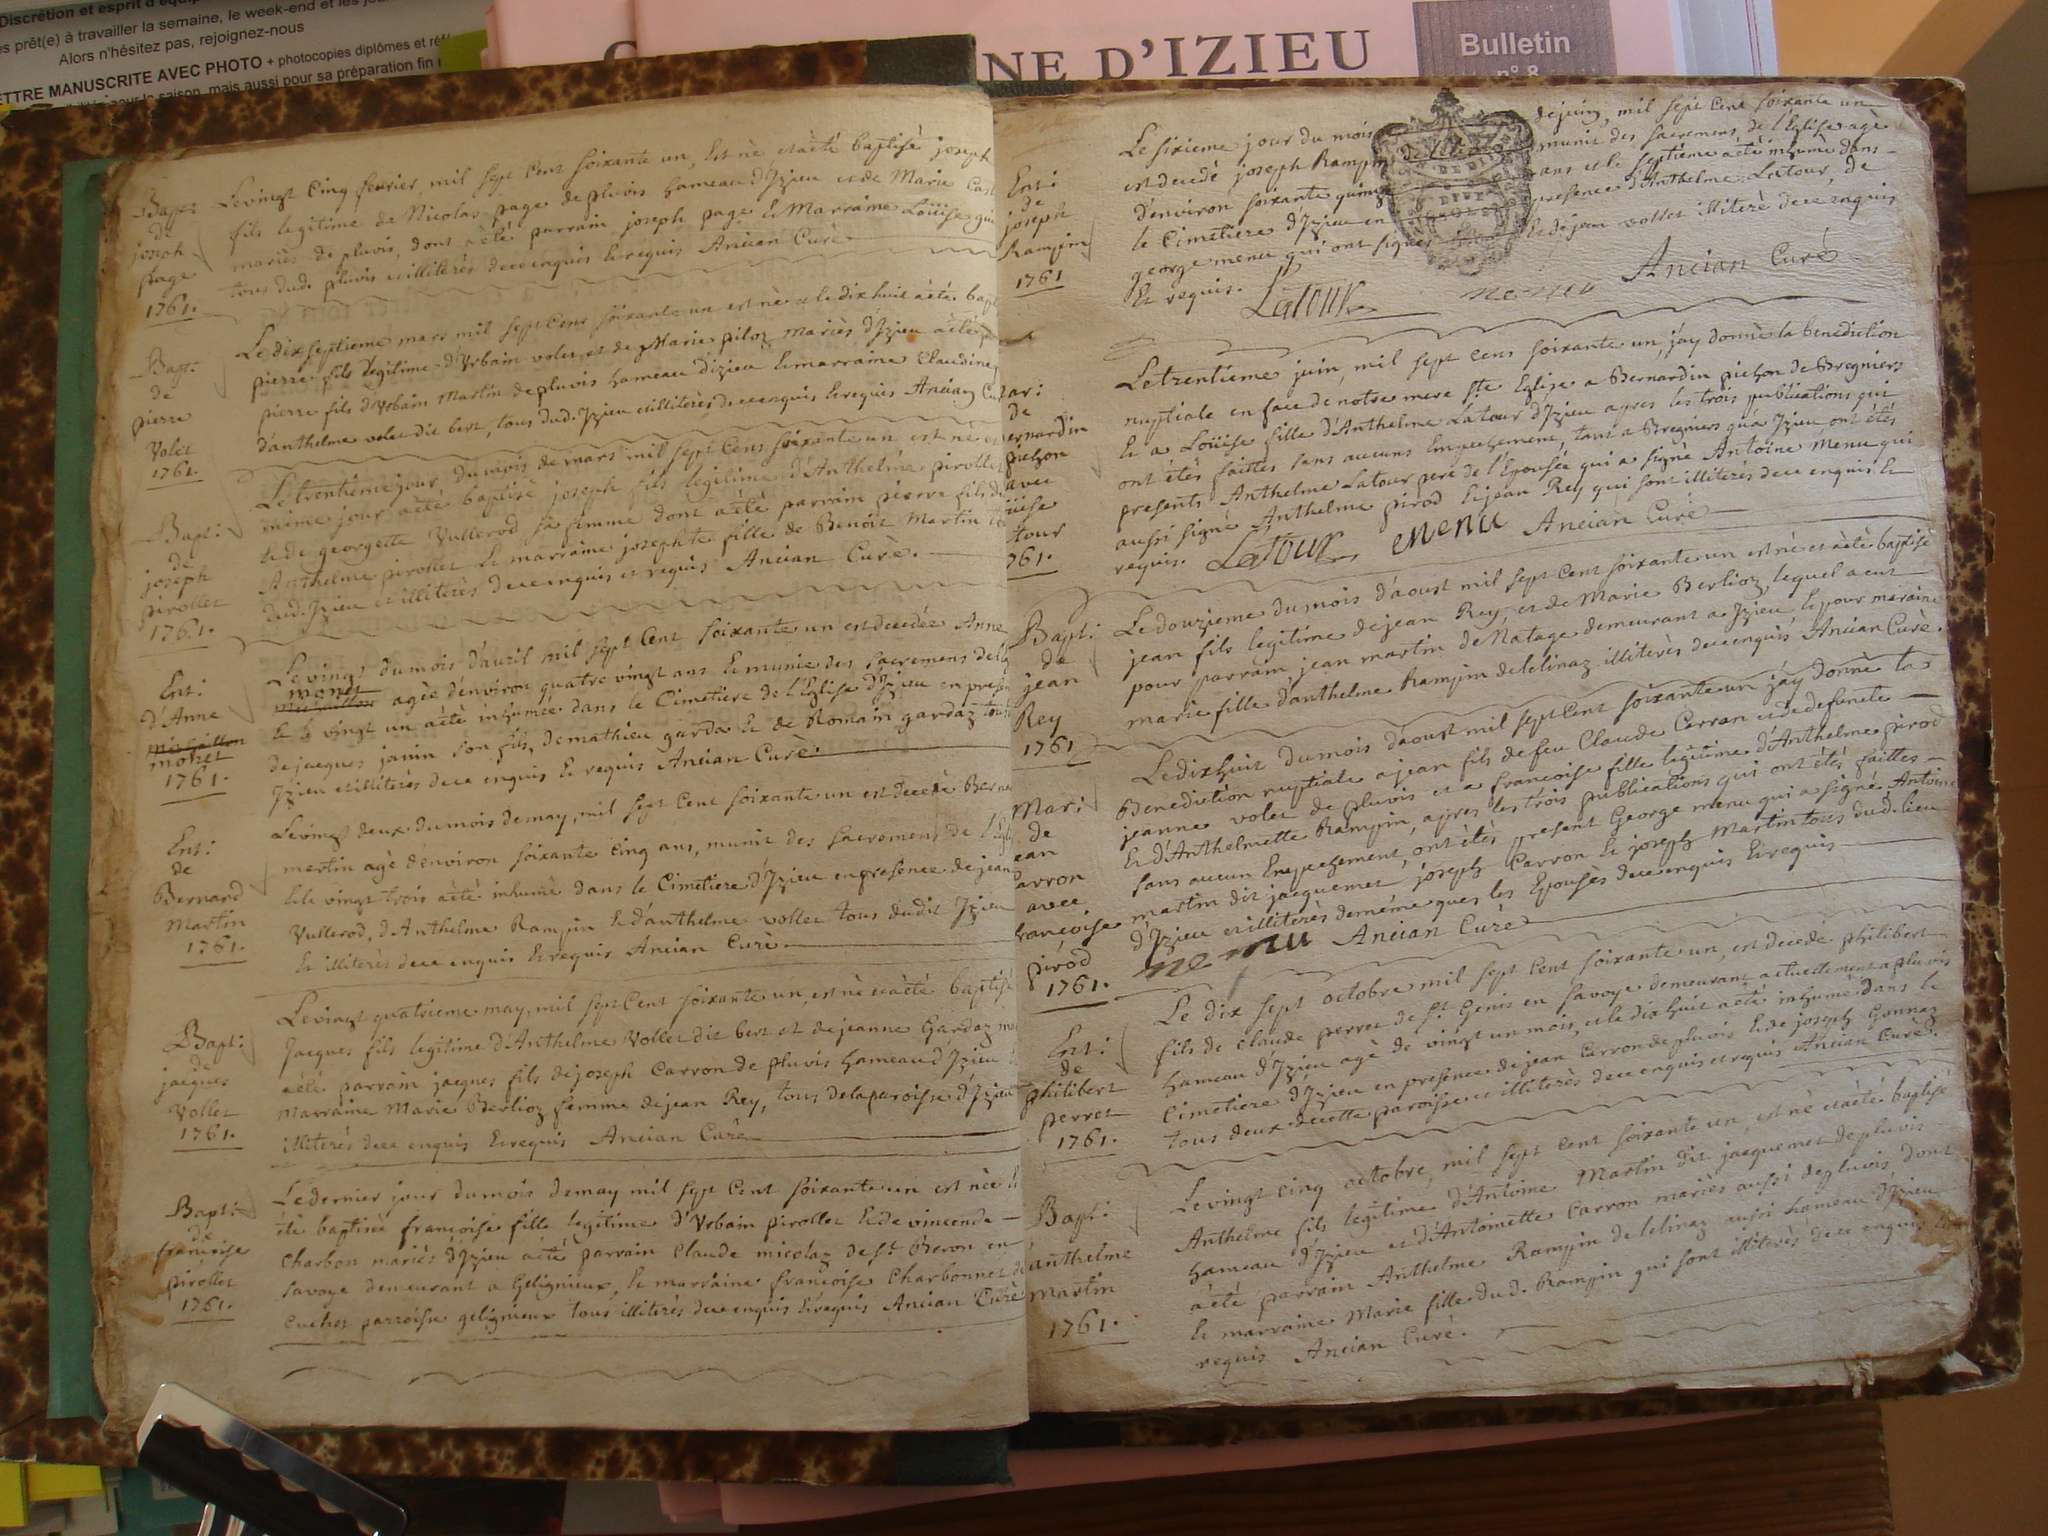 Discrétion et esprit d'équip
es prêt(e) à travailler la semaine, le week-end et les jou
Alors n'hésitez pas, rejoignez-nous
ETTRE MANUSCRITE AVEC PHOTO + photocopies diplômes et réf
saison, mais aussi pour sa préparation fin
NE D'IZIEU
Bulletin
n° 8
Bapt:
de
joseph
page
1761.
Le vingt Cinq fevrier, mil sept Cent soixante un, Est nè, et a èté baptisè joseph
fils legitime de Nicolas page de pluvis hameau d'Izieu et de Marie
mariés de pluvis, dont a èté parrain joseph page Et Marraine Loüise
tous dud. pluvis et illiterès de ce enquis Et requis Ancian Curè
Bapt:
de
pierre
Volet
1761.
Le dix septieme mars mil sept Cent soixante un est nè et le dix huit a èté bapt
pierre fils legitime d'Urbain volet, et de Marie piloz mariès d'Izieu a èté
pierre fils d'Urbain Martin de pluvis hameau d'izieu Et marraine Claudine
d'anthelme volet dit bert, tous dud. Izieu et illiterès de ce enquis Et requis Ancian Cu
Bapt:
de
joseph
pirollet
1761.
Le trentieme jour du mois de mars mil sept Cent soixante un est nè et
même jour a èté baptisè joseph fils legitime d'Anthelme pirollet
et de georgette Vullerod sa femme dont a èté parrain pierre fils d
Anthelme pirollet Et marraine josephte fille de Benoit Martin
dud. Izieu et illiterès de ce enquis et requis Ancian Curè.
Ent:
d'Anne
monet
1761.
Le vingt du mois d'avril mil sept Cent soixante un est decedée Anne
monet
agèe d'environ quatre vingt ans Et munie des sacremens de l
Et le vingt un a èté inhumèe dans le Cimetiere de l'Eglise d'Izieu en prese
de jacques janin son fils, de mathieu gardaz Et de Romain gardaz tous
Izieu et illiterès de ce enquis Et requis Ancian Curè.
Ent:
de
Bernard
Martin
1761.
Le vingt deux du mois de may, mil sept Cent soixante un est decedè Berna
martin agè d'environ soixante Cinq ans, munit des sacremens de l'Egl
Et le vingt trois a èté inhumè dans le Cimetiere d'Izieu en presence de jean
Vullerod, d'Anthelme Rampin Et d'anthelme vollet tous dudit Izieu
Et illiterès de ce enquis Et requis Ancian Curè.
Bapt:
de
jacques
Vollet
1761.
Le vingt quatrieme may, mil sept Cent soixante un, est nè et a èté baptisè
Jacques fils legitime d'Anthelme Vollet dit bert et de jeanne Gardaz
a èté parrain jacques fils de joseph Carron de pluvis hameau d'Izieu
marraine Marie Berlioz femme de jean Rey, tous de la paroisse d'Izieu
illiterès de ce enquis Et requis Ancian Curè
Bapt:
de
françoise
pirollet
1761.
Le dernier jour du mois de may mil sept Cent soixante un est nèe
èté baptisèe françoise fille legitime d'Urbain pirollet Et de vincende
Charbon mariès d'Izieu a èté parrain Claude micolaz de st. Beron en
savoye demeurant a Gelignieux, Et marraine françoise Charbonnet
Cuchet parroisse gelignieux tous illiterès de ce enquis Et requis Ancian Curè
Ent:
de
joseph
Rampin
1761
Le sixieme jour du mois de juin, mil sept Cent soixante un
est decedè joseph Rampin munit des sacremens de l'Eglise agè
d'environ soixante quinze ans et le septieme a èté inhumè dans
le Cimetiere d'Izieu en presence d'Anthelme Latour, de
george menu qui ont signès Et de jean vollet illiterè de ce enquis
Et requis.
Latour menu Ancian Curè
ar:
de
ernardin
pichon
avec
oüise
tour
761.
Le trentieme juin, mil sept Cent soixante un, j'ay donnè la benediction
nuptiale en face de notre mere ste. Eglise a Bernardin pichon de Bregniers
Et a Loüise fille d'Anthelme Latour d'Izieu apres les trois publications qui
ont étès faittes sans aucuns Empechement, tant a Bregniers qu'a Izieu ont étés
presents Anthelme Latour pere de l'Epousée qui a signè Antoine menu qui
aussi signè Anthelme pirod Et jean Rey qui sont illiterès de ce enquis Et
requis. Latour menu Ancian Curè
Bapt:
de
jean
Rey
1761
Le douzieme du mois d'aoust mil sept Cent soixante un est nè et a èté baptisè
jean fils legitime de jean Rey et de Marie Berlioz, lequel a eut
pour parrain jean martin de Natage demeurant a Izieu Et pour maraine
marie fille d'anthelme Rampin de lelinaz illiterès de ce enquis Ancian Curè.
Mar:
de
ean
arron
avec
françoise
pirod
1761.
Le dix huit du mois d'aoust mil sept Cent soixante un j'ay donnè la
Benediction nuptiale a jean fils de feu Claude Carron et de defunte
jeanne volet de pluvis et a françoise fille legitime d'Anthelme pirod
Et d'Anthelmette Rampin, apres les trois publications qui ont étés faittes
sans aucun Empechement, ont étès present George menu qui a signé Antoine
martin dit jacquemet, joseph Carron Et joseph Martin tous dud. lieu
d'Izieu et illiterès de même que les Epouses de ce enquis Et requis
menu Ancian Curè
Ent:
de
philibert
perret
1761.
Le dix sept octobre mil sept Cent soixante un, est decedè philibert
fils de Claude perret de st. Genis en savoye demeurant actuellement a pluvis
hameau d'Izieu agè de vingt un mois, et le dix huit a èté inhumè dans le
Cimetiere d'Izieu en presence de jean Carron de pluvis Et de joseph Gonnaz
tous deux de cette paroisse et illiterès de ce enquis et requis Ancian Curè.
Bapt:
d'anthelme
martin
1761.
Le vingt Cinq octobre, mil sept Cent soixante un, est nè et a èté baptisè
Anthelme fils legitime d'Antoine Martin dit jacquemet de pluvis
hameau d'Izieu et d'Antoinette Carron mariès aussi de pluvis, dont
a èté parrain Anthelme Rampin de lelinaz aussi hameau d'Izieu
Et marraine Marie fille du d. Rampin qui sont illiterès de ce enquis Et
requis Ancian Curè.